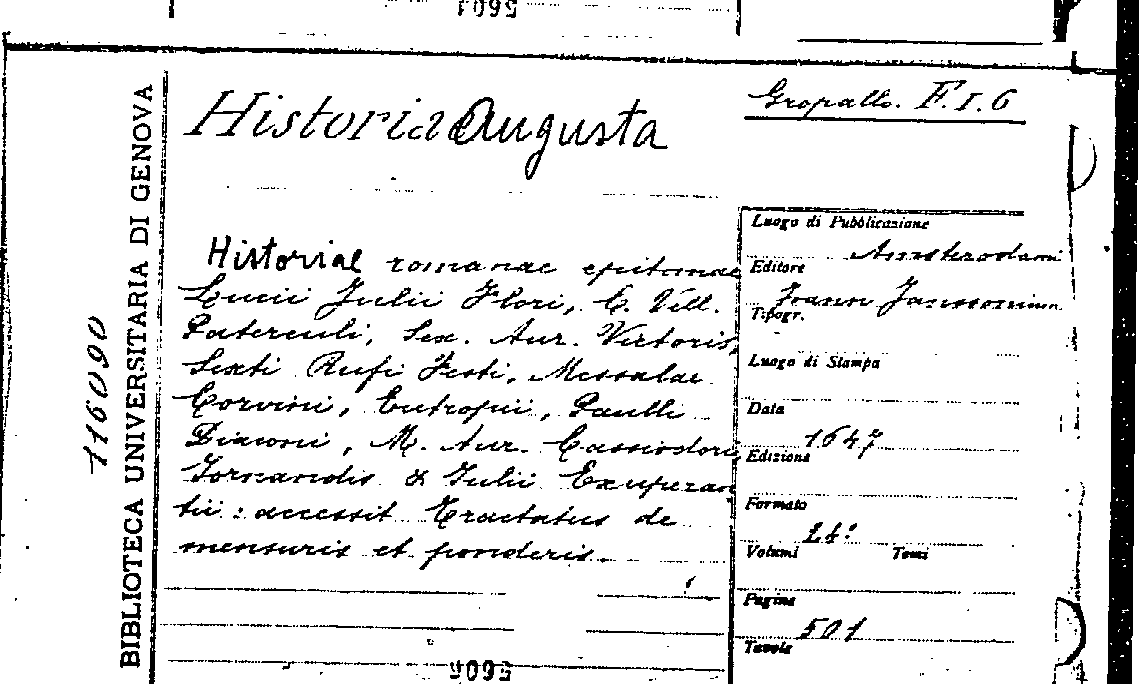 5601
Historia Augusta
Gropallo. F. I. 6
BIBLIOTECA UNIVERSITARIA DI GENOVA
116090
Historiae romanae epitomae
Lucii Julii Flori, C. Vell.
Paterculi, Sex. Aur. Victoris,
Sexti Rufi Festi, Messalae
Corvini, Eutropii, Paulli
Diaconi, M. Aur. Cassiodori,
Jornandis & Julii Exuperan
tii: accessit Tractatus de
mensuris et ponderis.
Luogo di Pubblicazione
Amsterodami
Editore
Joann Janssonium
Tipogr.
Luogo di Stampa
Data
1647
Edizione
Formato
24°
Volumi Tomi
Pagine
501
Tavole